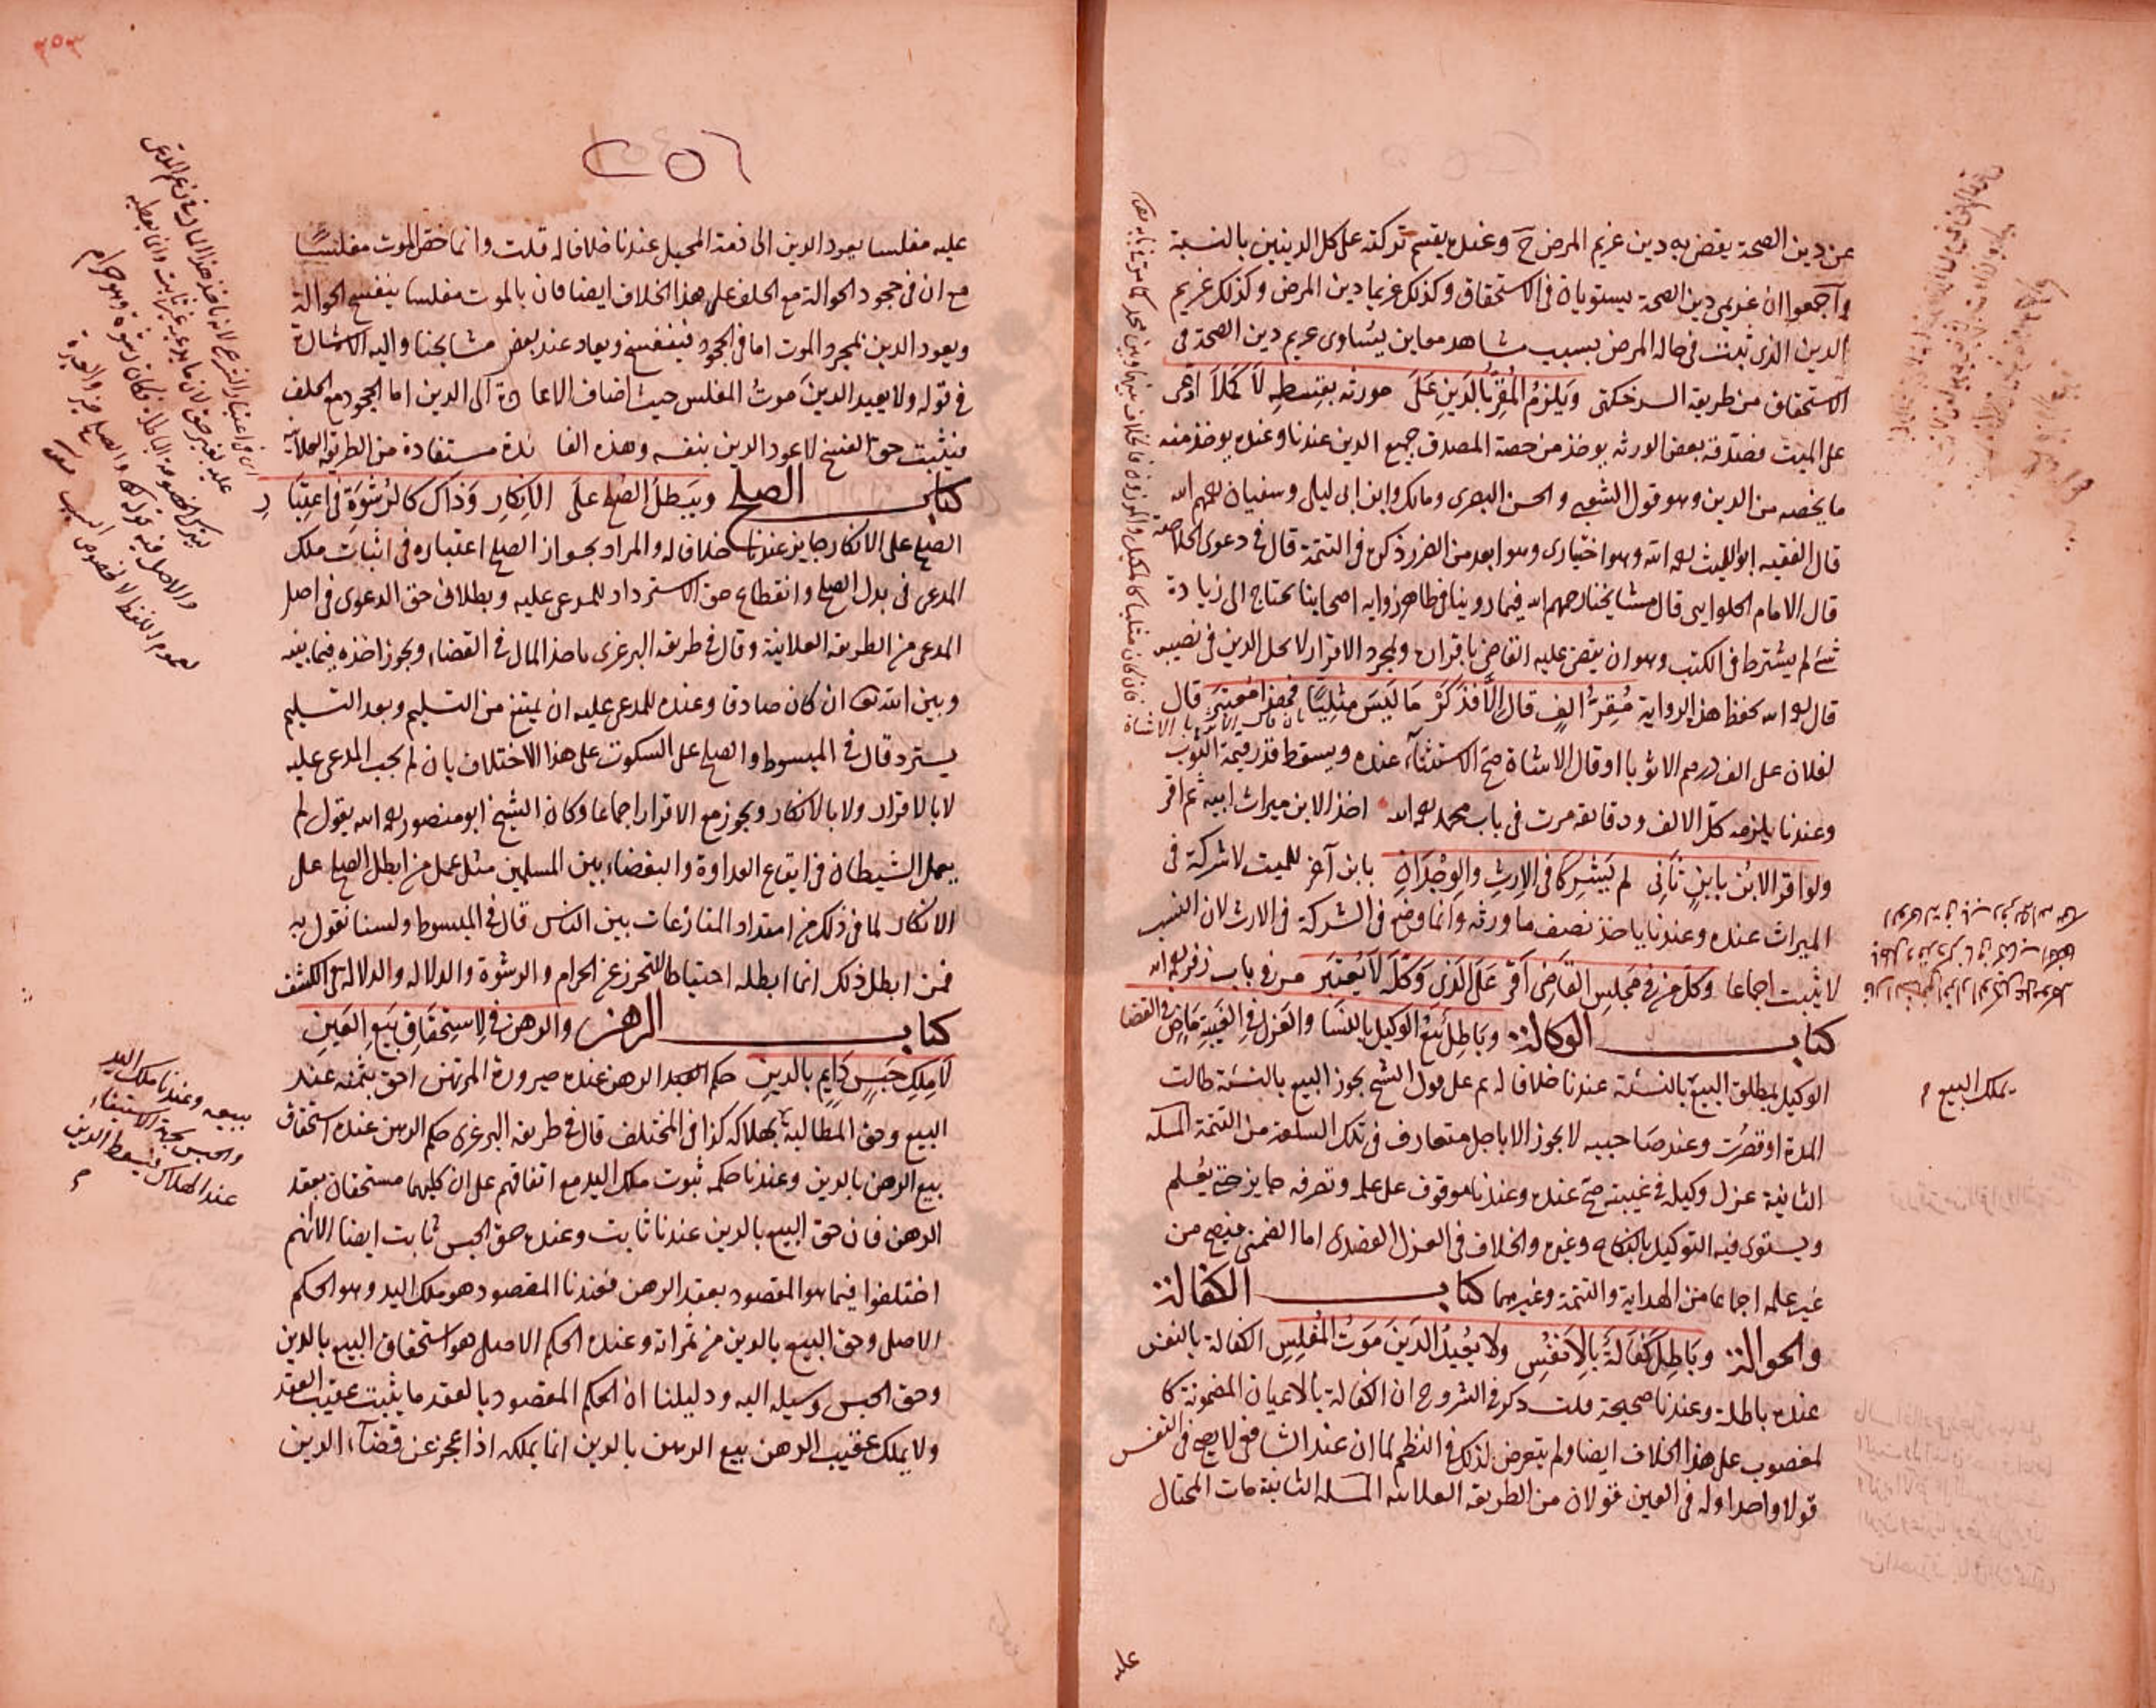 عن دين الصحة يقضى به دين غريم المرض ح وعنده يقسم تركته على كل الدينين بالنسبة
وأجمعوا ان غريمي دين الصحة يستويان في الاستحقاق وكذلك غريما دين المرض وكذلك غريم
الدين الذي ثبت في حاله المرض بسبب مشاهد معاين يساوى غريم دين الصحة في
الاستحقاق من طريقة السرخكتى ويلزم المقر بالدين على مورثه بقسطه لا كملا ادعى
على الميت فصدقه بعض الورثه يوخذ من حصة المصدق جميع الدين عندنا وعنده يوخذ منه
ما يخصه من الدين وهو قول الشعبي والحسن البصرى ومالك وابن ابى ليلى وسفيان رحمهم الله
قال الفقيه ابو الليث رحمه الله وهو اختيارى وهو ابعد من الضرر ذكره في التتمة قال في دعوى الخلاصة
قال الامام الحلوايى قال مشايخنا رحمهم الله فيما روينا في ظاهر روايه اصحابنا يحتاج الى زيادة
شئ لم يشترط في الكتب وهو ان يقضى عليه القاضى باقراره وبمجرد الاقرار لا يحل الدين في نصيبه
قال رحمه الله يحفظ هذا الرواية مقر الف قال الا فذكر ما ليس مثليا فهذا معتبر قال
لفلان على الف درهم الا ثوبا او قال الا شاة صح الاستثناء عنده ويسقط قدر قيمة الثوب
وعندنا يلزمه كل الالف ودقائقه مرت في باب محمد رحمه الله اخذ الابن ميراث ابيه ثم اقر
ولو اقر الابن بابن ثاني لم يشركا في الارث والوجدان بابن آخر للميت لا شركة في
الميراث عنده وعندنا ياخذ نصف ما ورثه وانما وضع في الشركة في الارث لان النسب
لا يثبت اجماعا وكل من في مجلس القاضى اقر على الذى وكله لا يعتبر مر في باب زفر رحمه الله
كتاب الوكالة وباطل بيع الوكيل بالنسا والعزل في الغيبة ماض في القضا
الوكيل بمطلق البيع بالنسئة عندنا خلافا له ثم على قول الشيخ يجوز البيع بالنسئة طالت
المدة او قصرت وعند صاحبيه لا يجوز الا باجل متعارف في تلك السلعة من التتمة المسله
الثانية عزل وكيله في غيبته صح عنده وعندنا موقوف على علمه وتصرفه جايز حتى يعلم
ويستوى فيه التوكيل بالنكاح وغيره والخلاف في العزل القصدى اما الضمنى فيصح من
غير علمه اجماعا من الهداية والتتمة وغيرهما كتاب الكفالة
والحوالة وباطل كفالة بالانفس ولا يعيد الدين موت المفلس الكفالة بالنفس
عنده باطلة وعندنا صحيحة قلت ذكر في الشروح ان الكفالة بالاعيان المضمونة كا
لمغصوب على هذا الخلاف ايضا ولم يتعرض لذلك في النظم لما ان عند الشافعى لا يصح في النفس
قولا واحدا وله في العين قولان من الطريقه العلائيه المسله الثانية مات المحتال
يملك البيع
عليه
٢٥٦
عليه مفلسا يعود الدين الى ذمة المحيل عندنا خلافا له قلت وانما خص الموت مفلسا
مع ان في جحود الحوالة مع الحلف على هذا الخلاف ايضا فان بالموت مفلسا ينفسخ الحوالة
ويعود الدين بمجرد الموت اما في الجحود فينفسخ ويعاد عند بعض مشايخنا واليه الاشارة
في قوله ولا يعيد الدين موت المفلس حيث اضاف الاعادة الى الدين اما الجحود مع الحلف
فيثبت حق الفسخ لا عود الدين بنفسه وهذه الفائدة مستفادة من الطريقه العلائية
كتاب الصلح ويبطل الصلح على الانكار وذاك كالرشوة في اعتبار
الصلح على الانكار جايز عندنا خلافا له والمراد بجواز الصلح اعتباره في اثبات ملك
المدعى في بدل الصلح وانقطاع حق الاسترداد للمدعى عليه وبطلان حق الدعوى في اصل
المدعى من الطريقه العلائية وقال في طريقه البرغرى ياخذ المال في القضاء ويجوز اخذه فيما بينه
وبين الله تعالى ان كان صادقا وعنده للمدعى عليه ان يمتنع من التسليم وبعد التسليم
يسترد قال في المبسوط والصلح على السكوت على هذا الاختلاف بان لم يجب المدعى عليه
لا بالاقرار ولا بالانكار ويجوز مع الاقرار اجماعا وكان الشيخ ابو منصور رحمه الله يقول لم
يعمل الشيطان في ايقاع العداوة والبغضاء بين المسلمين مثل عمل من ابطل الصلح على
الانكار لما في ذلك من امتداد المنازعات بين الناس قال في المبسوط ولسنا نقول به
فمن ابطل ذلك انما ابطله احتياطا للتحرز عن الحرام والرشوة والدلاله والدلالة في الكشف
كتاب الرهن والرهن في الاستحقاق بيع العين
لا ملك حبس دايم بالدين حكم العقد الرهن عنده صيرورة المرتهن احق بثمنه عند
البيع وحق المطالبة بهلاكه كذا في المختلف قال في طريقه البرغرى حكم الرهن عنده استحقاق
بيع الرهن بالدين وعندنا حكمه ثبوت ملك اليد مع اتفاقهم على ان كليهما مستحقان بعقد
الرهن فان حق البيع بالدين عندنا ثابت وعنده حق الحبس ثابت ايضا الا انهم
اختلفوا فيما هو المقصود بعقد الرهن فعندنا المقصود هو ملك اليد وهو الحكم
الاصلى وحق البيع بالدين من ثمراته وعنده الحكم الاصلى هو استحقاق البيع بالدين
وحق الحبس وسيله اليه ودليلنا ان الحكم المقصود بالعقد ما يثبت عقيب العقد
ولا يملك عقيب الرهن بيع الرهن بالدين انما يملكه اذا عجز عن قضاء الدين
ببيعه وعندنا ملك اليد
والحبس بجهة الاستيفاء
عند الهلاك فيسقط الدين